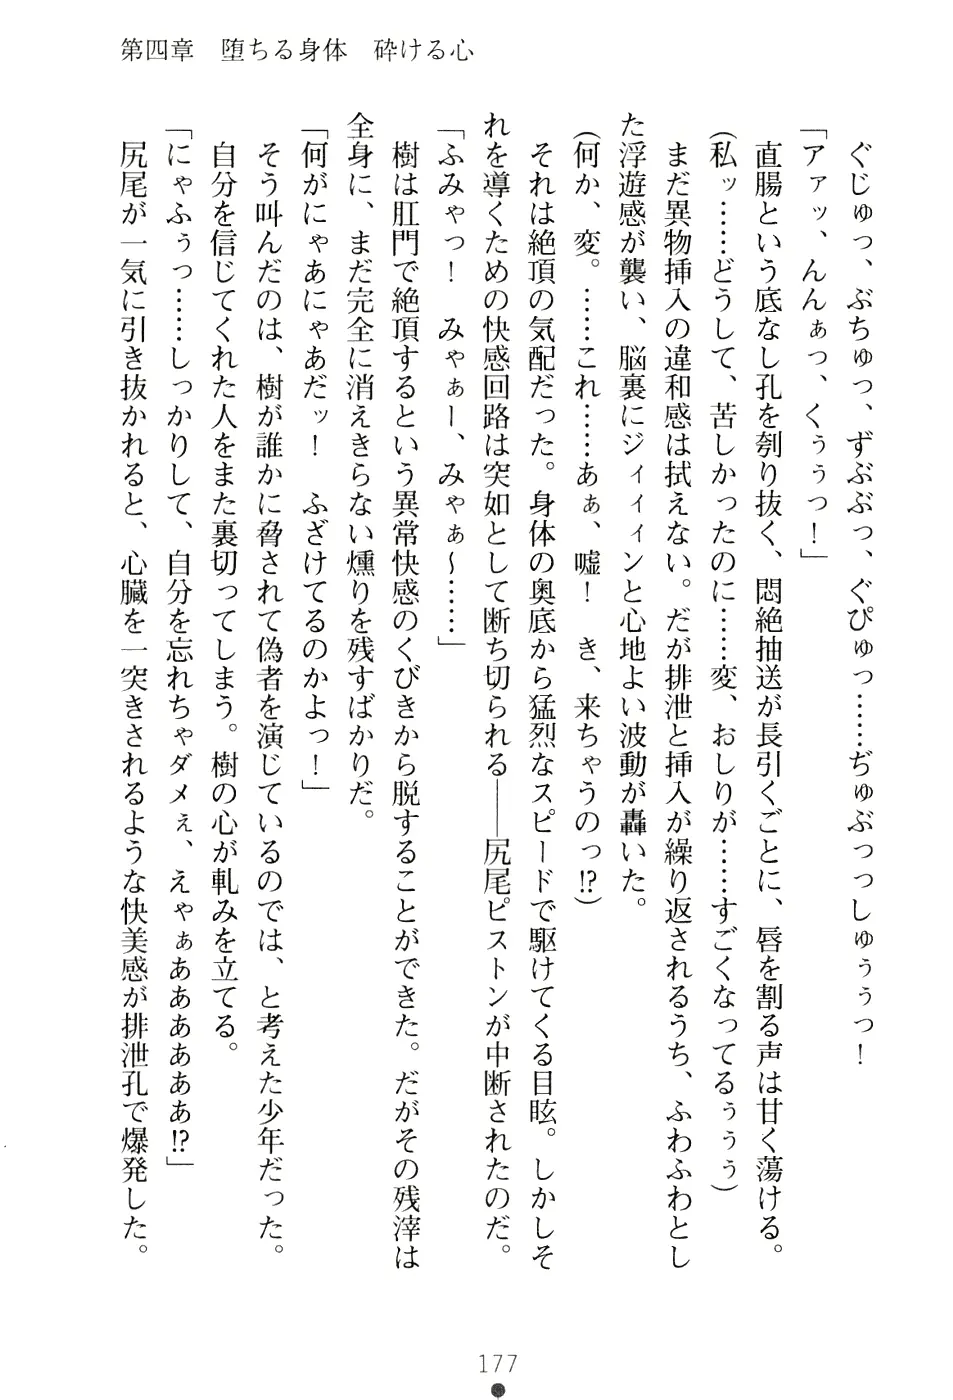 第四章　堕ちる身体　砕ける心
ぐじゅっ、ぶちゅっ、ずぶぶっ、ぐぴゅっ……ぢゅぶっっしゅぅぅっ！
「アァッ、んんぁっ、くぅぅっ！」
直腸という底なし孔を刳り抜く、悶絶抽送が長引くごとに、唇を割る声は甘く蕩ける。
(私ッ……どうして、苦しかったのに……変、おしりが……すごくなってるぅぅぅ)
まだ異物挿入の違和感は拭えない。だが排泄と挿入が繰り返されるうち、ふわふわとし
た浮遊感が襲い、脳裏にジィィィンと心地よい波動が轟いた。
(何か、変。……これ……あぁ、嘘！　き、来ちゃうのっ!?)
それは絶頂の気配だった。身体の奥底から猛烈なスピードで駆けてくる目眩。しかしそ
れを導くための快感回路は突如として断ち切られる――尻尾ピストンが中断されたのだ。
「ふみゃっ！　みゃぁー、みゃぁ～……」
樹は肛門で絶頂するという異常快感のくびきから脱することができた。だがその残滓は
全身に、まだ完全に消えきらない燻りを残すばかりだ。
「何がにゃあにゃあだッ！　ふざけてるのかよっ！」
そう叫んだのは、樹が誰かに脅されて偽者を演じているのでは、と考えた少年だった。
自分を信じてくれた人をまた裏切ってしまう。樹の心が軋みを立てる。
「にゃふぅっ……しっかりして、自分を忘れちゃダメぇ、えゃぁああああああ!?」
尻尾が一気に引き抜かれると、心臓を一突きされるような快美感が排泄孔で爆発した。
177